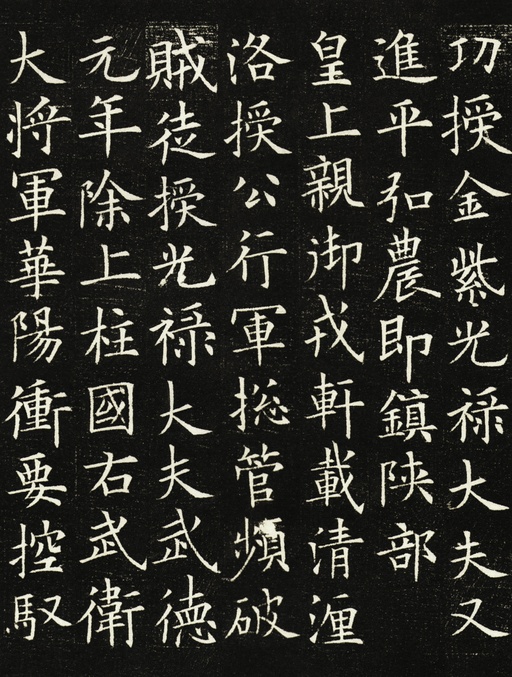 功授金紫光禄大夫又
進平弘農即鎮陝部
皇上親御戎軒載清𢌅
洛授公行軍揔管頻破
賊徒授光禄大夫武德
元年除上柱國右武衛
大將軍華陽衝要控馭